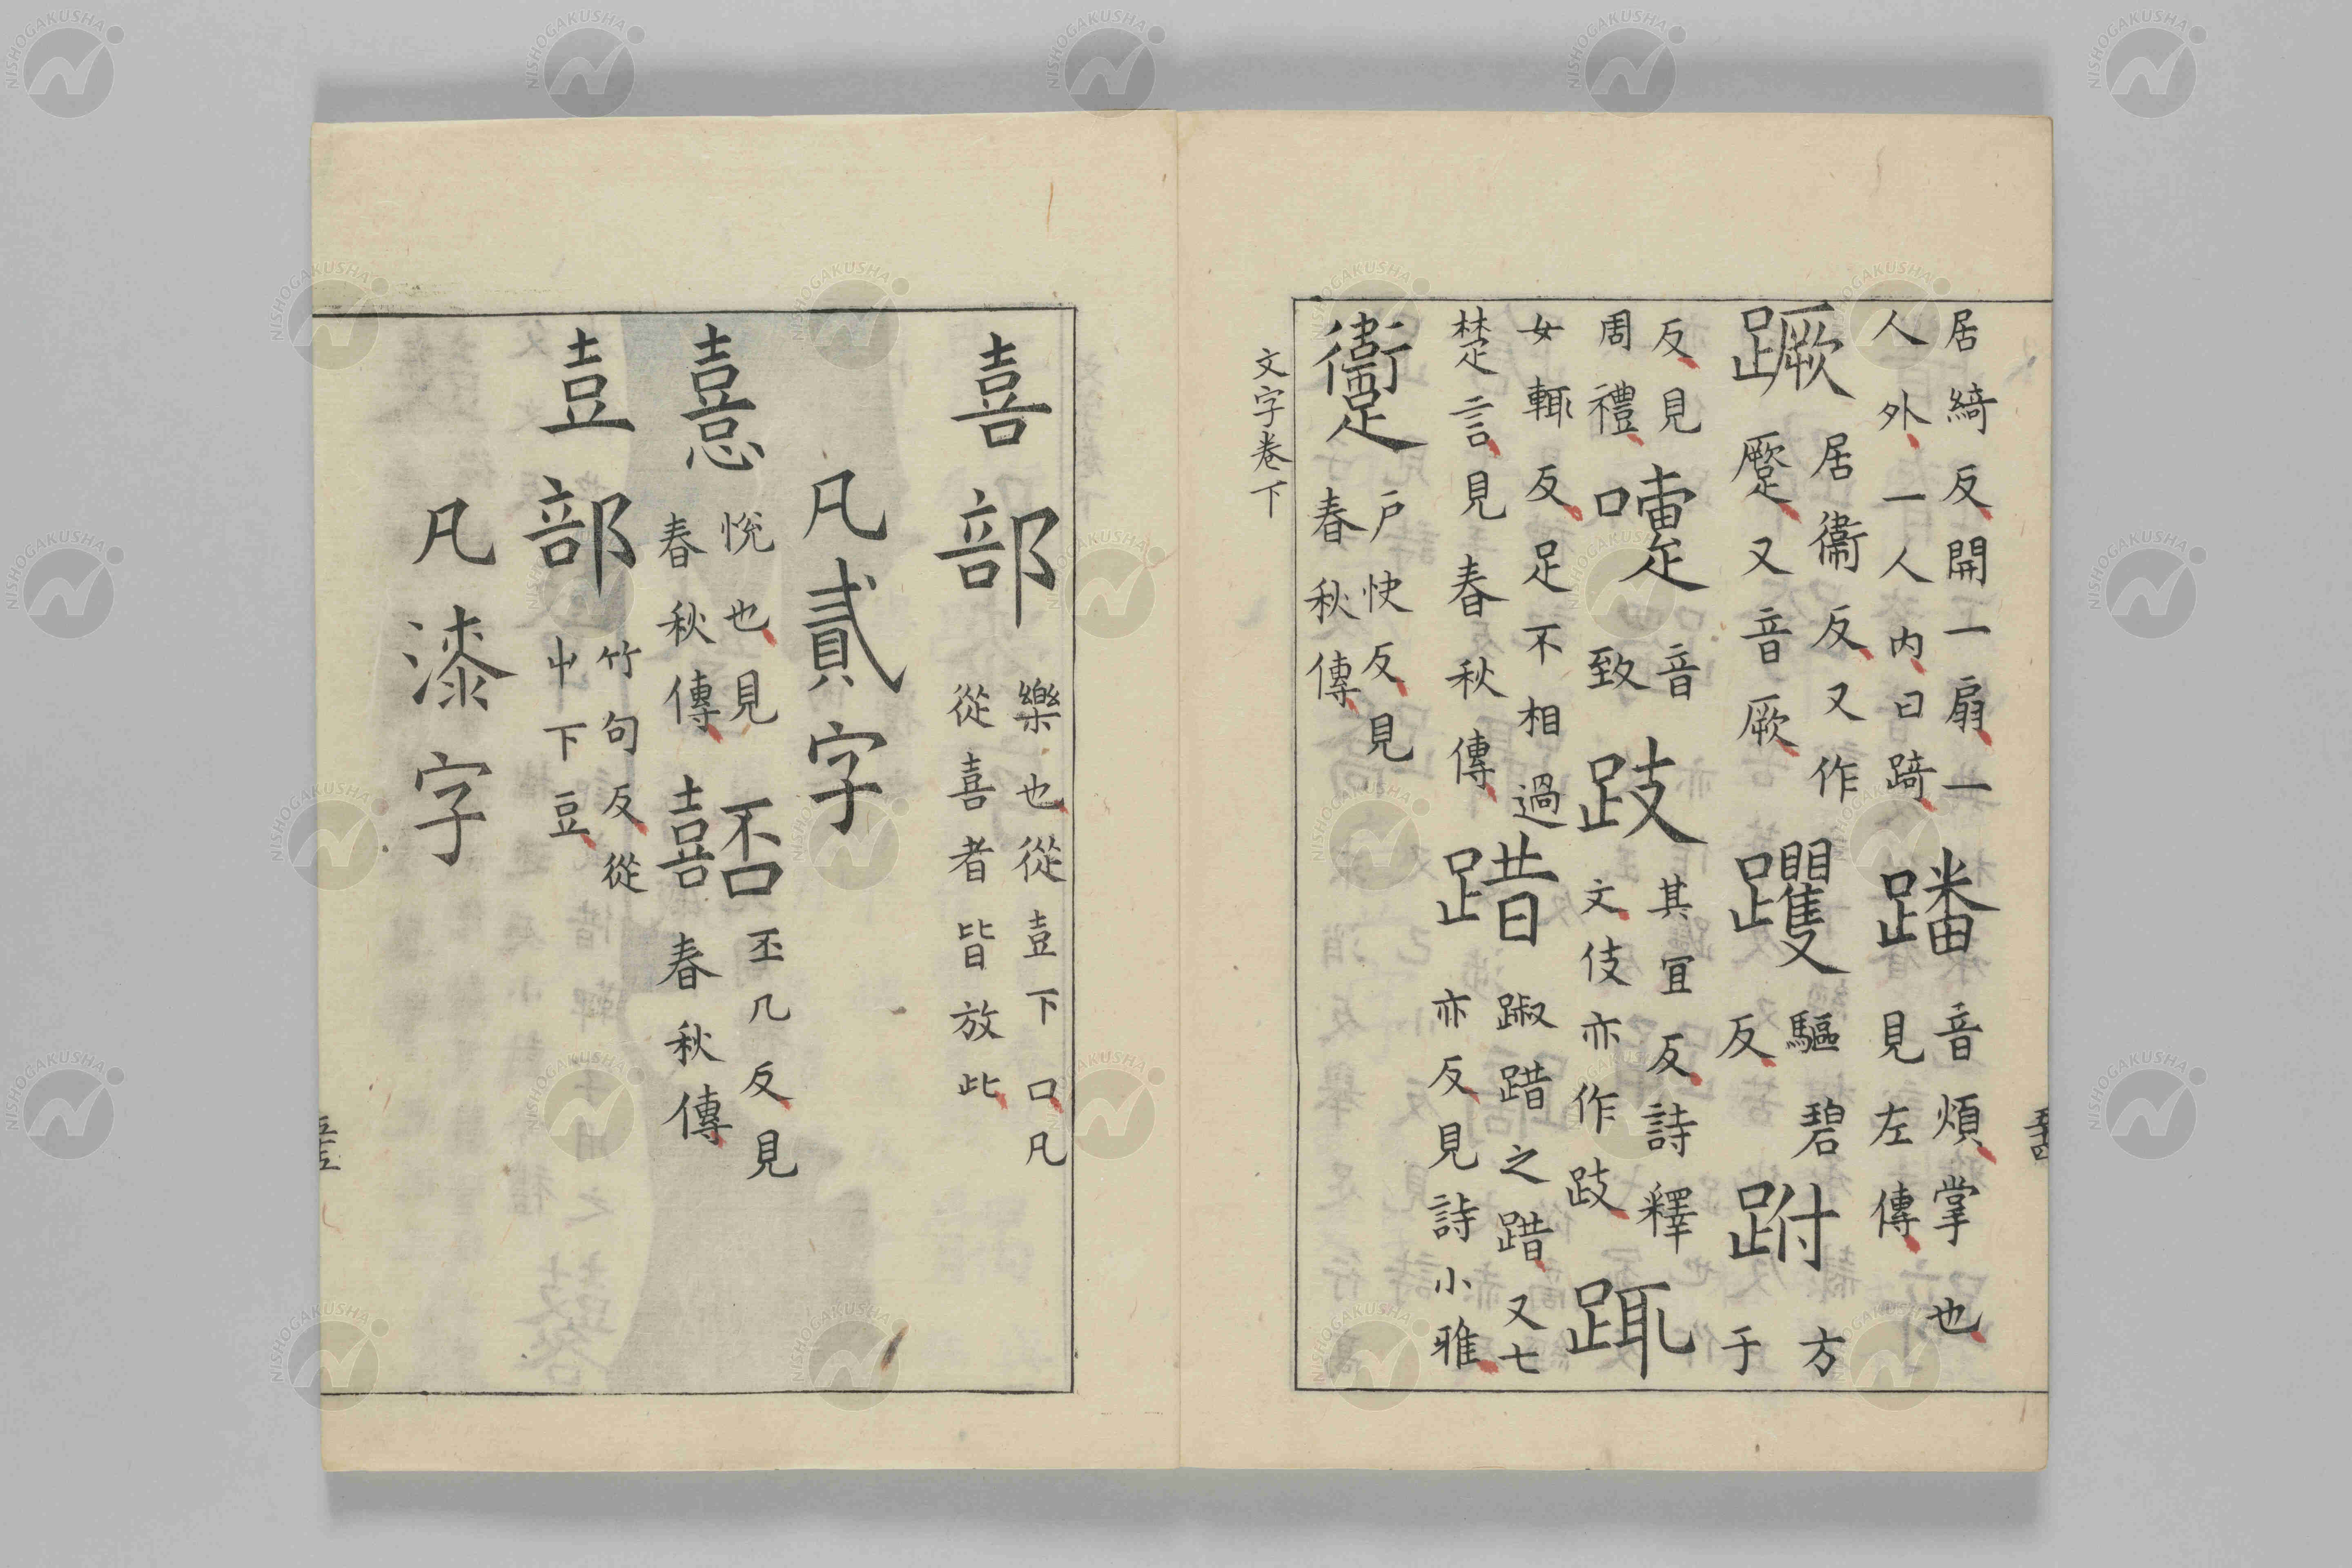 居綺反開一扇一
人外一人內曰踦
蹯
音煩掌也
見左傳
蹶
居衞反又作
蹷又音厥
躩
驅碧
反
跗
方
于
反見
周禮
嚔
音
致
跂
其宜反詩釋
文伎亦作跂
䟢
女輒反足不相過
楚言見春秋傳
踖
踧踖之踖又七
亦反見詩小雅
躗
戶快反見
春秋傳
文字卷下
喜部
樂也從壴下口凡
從喜者皆放此
凡貳字
憙
悅也見
春秋傳
嚭
丕几反見
春秋傳
壴部
竹句反從
屮下豆
凡漆字